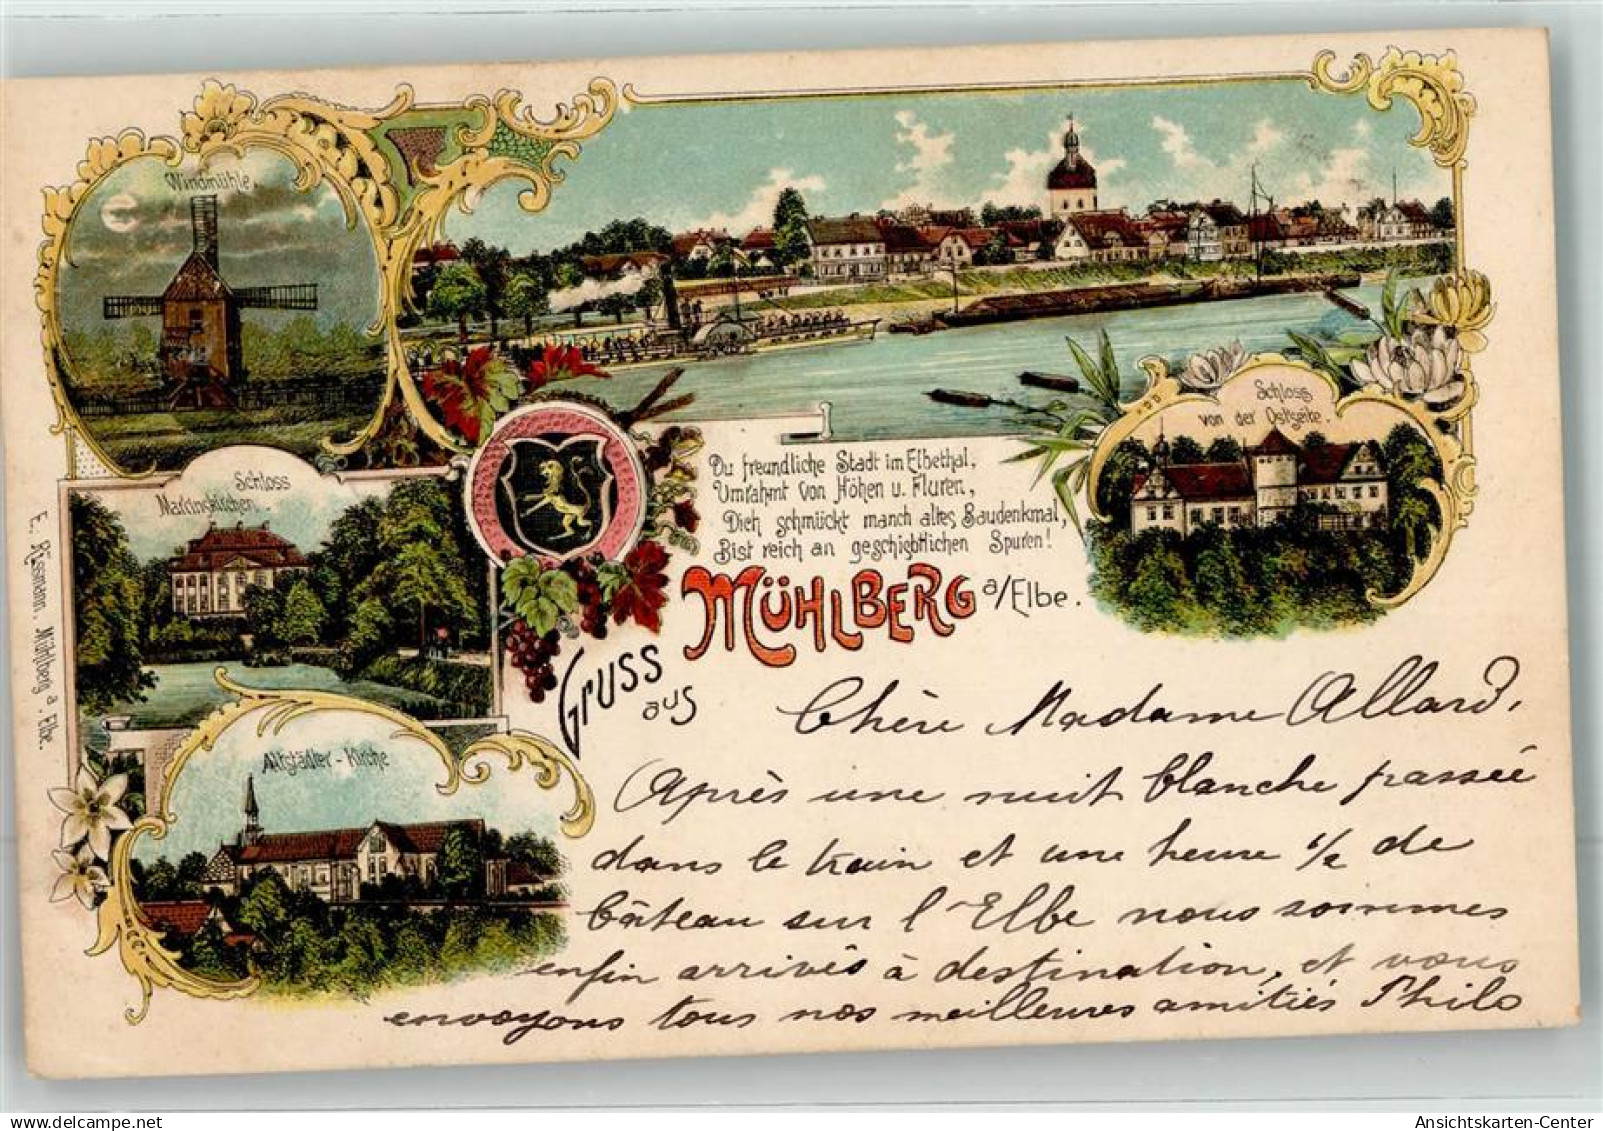 Windmühle.
Schloss
von der Ostseite.
Du freundliche Stadt im Elbethal,
Umrahmt von Höhen u. Fluren,
Dich schmückt manch altes Baudenkmal,
Bist reich an geschichtlichen Spuren!
Schloss
Martinskirchen.
Gruss
aus
MÜHLBERG a/Elbe.
Altstädter-Kirche
E. Rissmann, Mühlberg a. Elbe.
Chère Madame Allard,
Après une nuit blanche passée
dans le train et une heure 1/2 de
bâteau sur l'Elbe nous sommes
enfin arrivés à destination, et vous
envoyons tous nos meilleures amitiés Philo
Ansichtskarten-Center